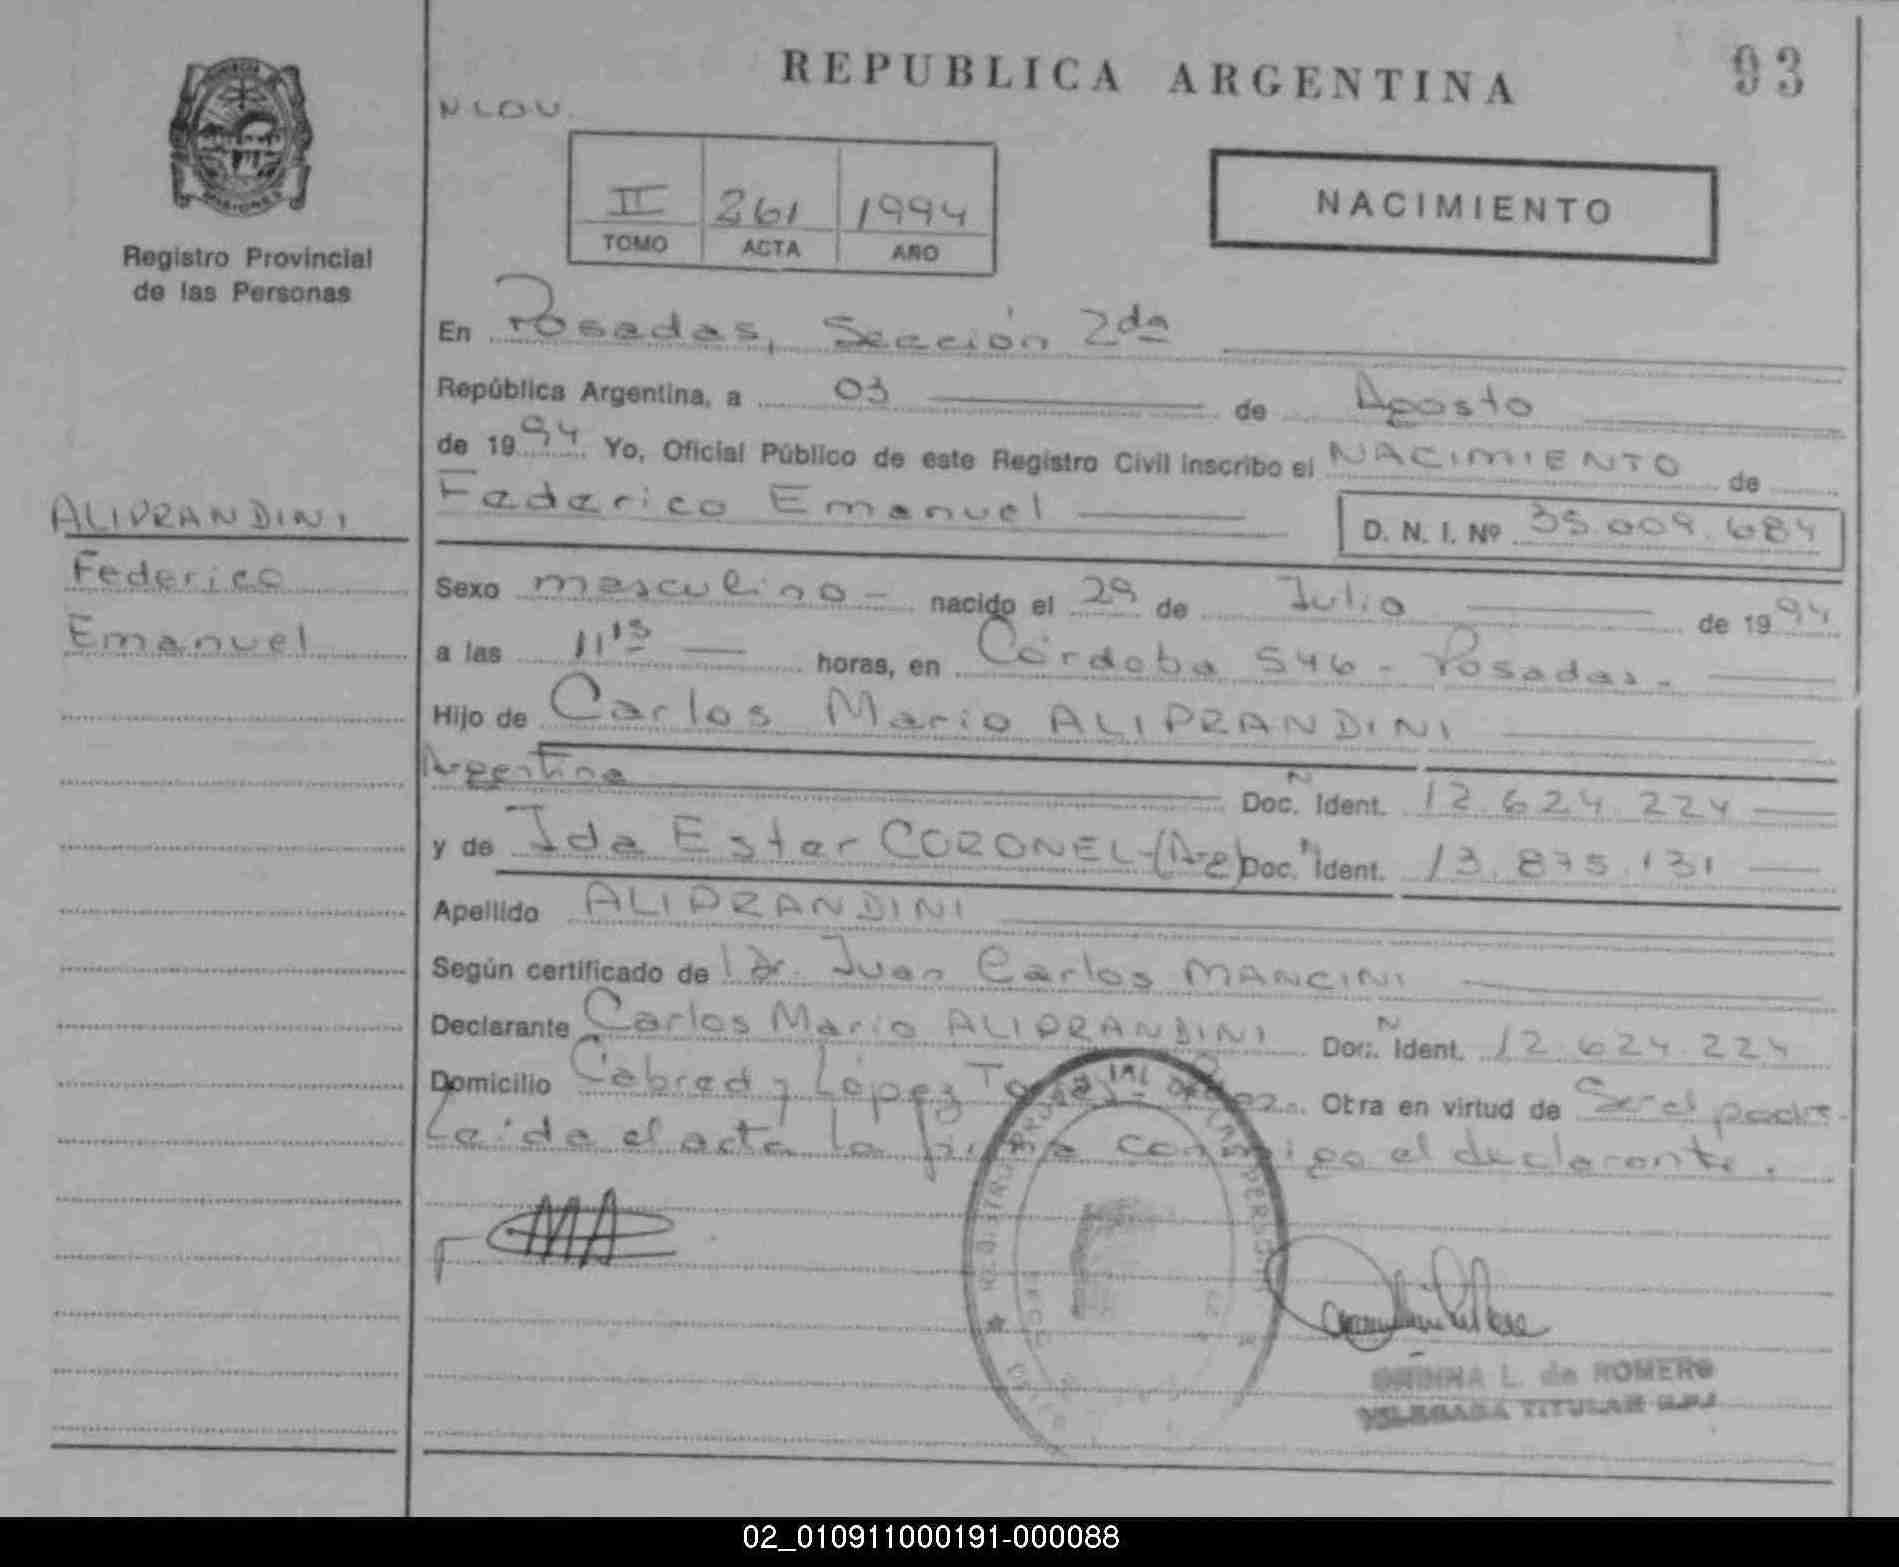 REPUBLICA ARGENTINA
93
NLOV.
II 261 1994
TOMO ACTA AÑO
NACIMIENTO
Registro Provincial
de las Personas
En Posadas, Sección 2da
República Argentina, a 03 de Agosto
de 1994 Yo, Oficial Público de este Registro Civil inscribo el NACIMIENTO de
Federico Emanuel D. N. I. Nº 35.009.684
ALIPRANDINI
Federico
Emanuel
Sexo masculino - nacido el 29 de Julio de 1994
a las 11 15 horas, en Córdoba 546 - Posadas.-
Hijo de Carlos Mario ALIPRANDINI
Argentina Doc. N Ident. 12.624.224
y de Ida Ester CORONEL-(Arg) Doc. N Ident. 13.875.131
Apellido ALIPRANDINI
Según certificado de Dr. Juan Carlos MANCINI
Declarante Carlos Mario ALIPRANDINI Doc. N Ident. 12.624.224
Domicilio Cabred y López Otra en virtud de Ser el padre.
Leída el acta la firma conmigo el declarante.
L. de ROMERO
DELEGADA TITULAR
02_010911000191-000088